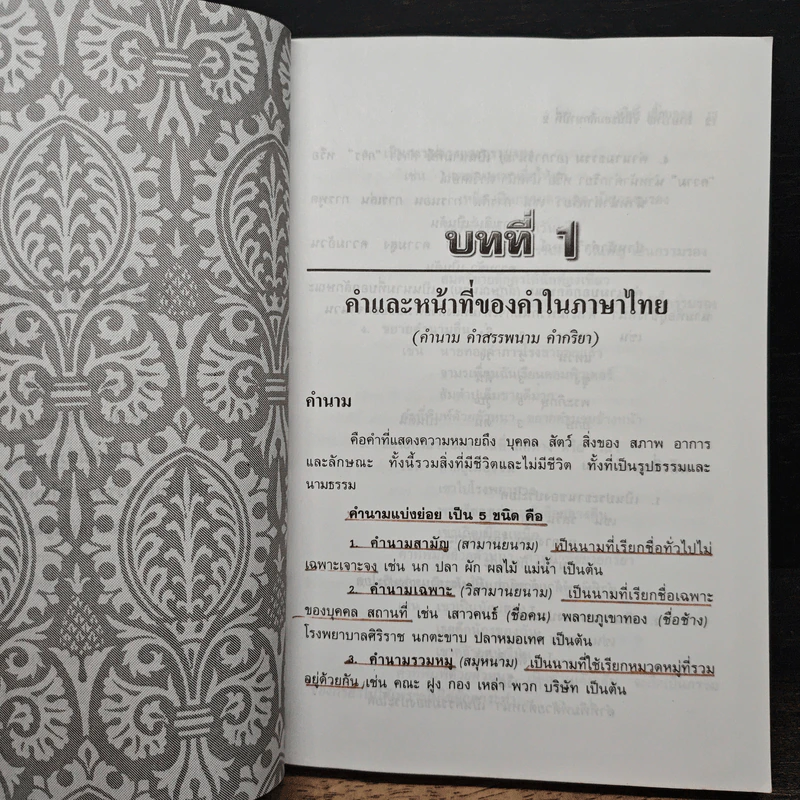 บทที่ 1
คำและหน้าที่ของคำในภาษาไทย
(คำนาม คำสรรพนาม คำกริยา)
คำนาม
คือคำที่แสดงความหมายถึง บุคคล สัตว์ สิ่งของ สภาพ อาการ
และลักษณะ ทั้งนี้รวมสิ่งที่มีชีวิตและไม่มีชีวิต ทั้งที่เป็นรูปธรรมและ
นามธรรม
คำนามแบ่งย่อย เป็น 5 ชนิด คือ
1. คำนามสามัญ (สามานยนาม) เป็นนามที่เรียกชื่อทั่วไปไม่
เฉพาะเจาะจง เช่น นก ปลา ผัก ผลไม้ แม่น้ำ เป็นต้น
2. คำนามเฉพาะ (วิสามานยนาม) เป็นนามที่เรียกชื่อเฉพาะ
ของบุคคล สถานที่ เช่น เสาวคนธ์ (ชื่อคน) พลายภูเขาทอง (ชื่อช้าง)
โรงพยาบาลศิริราช นกตะขาบ ปลาหมอเทศ เป็นต้น
3. คำนามรวมหมู่ (สมุหนาม) เป็นนามที่ใช้เรียกหมวดหมู่ที่รวม
อยู่ด้วยกัน เช่น คณะ ฝูง กอง เหล่า พวก บริษัท เป็นต้น